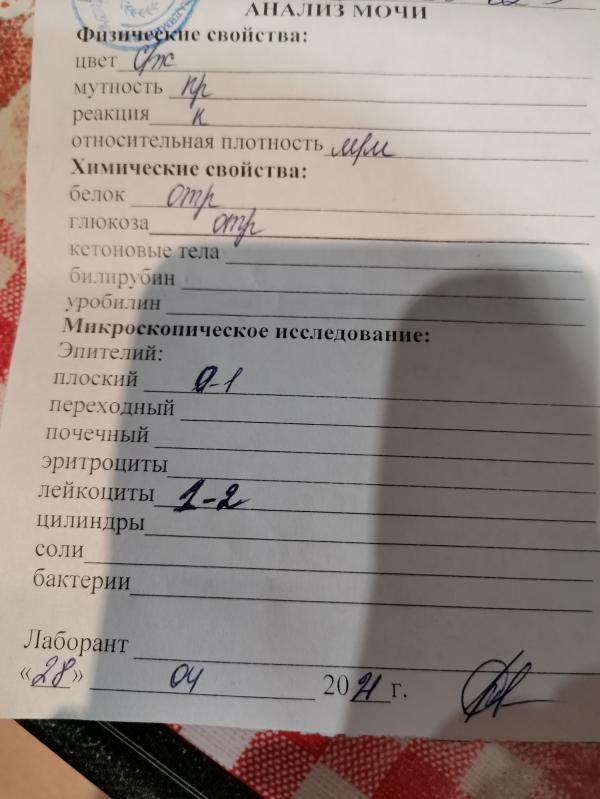 АНАЛИЗ МОЧИ
Физические свойства:
цвет с/ж
мутность пр
реакция к
относительная плотность м/м
Химические свойства:
белок отр
глюкоза отр
кетоновые тела
билирубин
уробилин
Микроскопическое исследование:
Эпителий:
плоский 0-1
переходный
почечный
эритроциты
лейкоциты 1-2
цилиндры
соли
бактерии
Лаборант
«28» 04 2021 г.